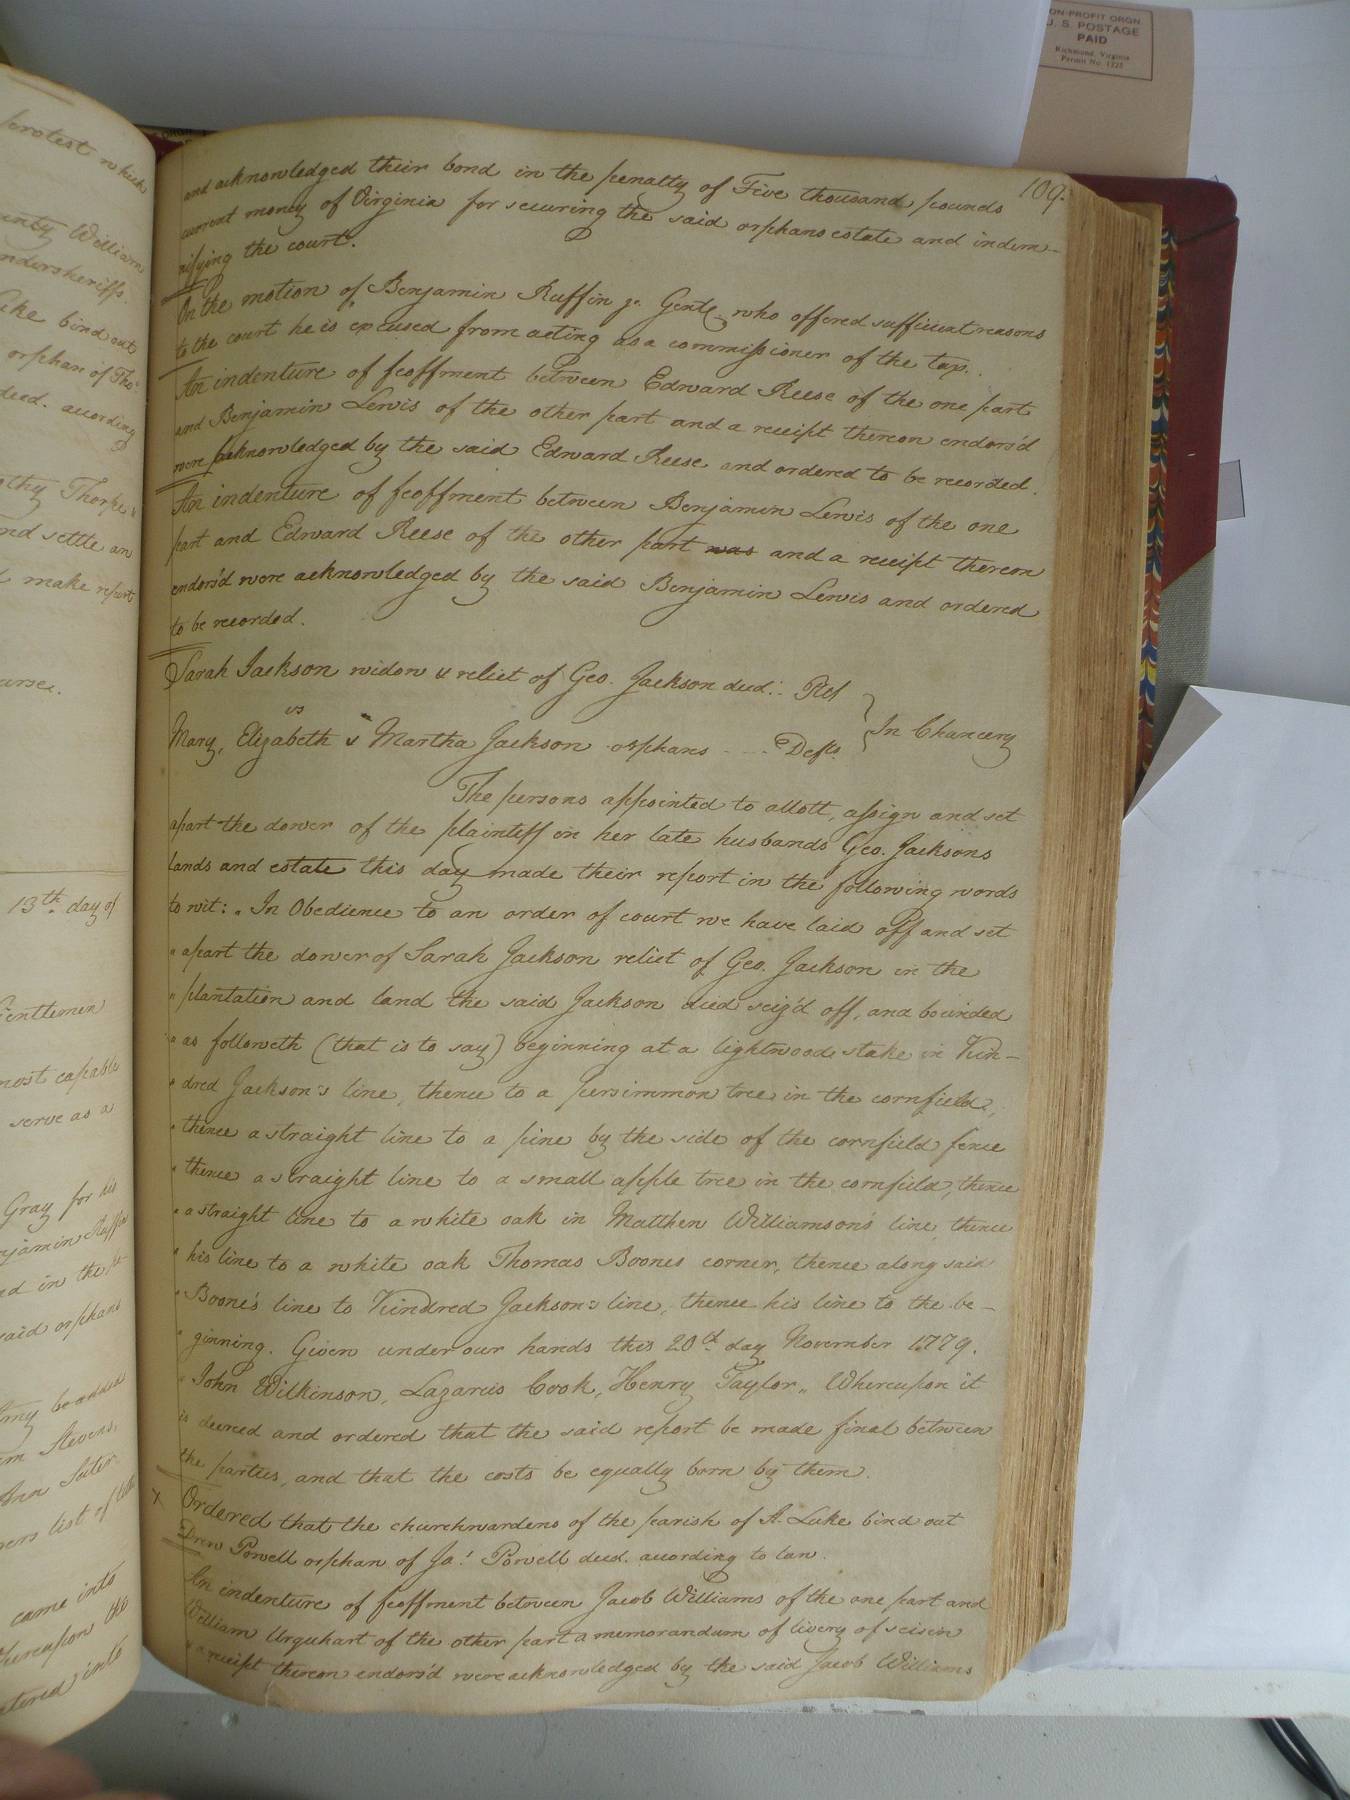 NON-PROFIT ORGN
U. S. POSTAGE
PAID
Richmond, Virginia
Permit No. 1225
protest which
unty William
ndersheriffs.
Luke bind out
orphan of Tho.s
deed. according
othy Thorpe &
nd settle an
make report
13th. day of
Gentlemen
most capable
serve as a
Gray for his
njamin Ruffin
ed in the
said orphans
my be added
am Stevens,
came into
Whereupon the
entered into
109.
and acknowledged their bond in the penalty of Five thousand pounds
current money of Virginia for securing the said orphans estate and indem-
nifying the court.
On the motion of Benjamin Ruffin jr. Gentl. who offered sufficient reasons
to the court he is excused from acting as a commissioner of the tax.
An indenture of feoffment between Edward Reese of the one part
and Benjamin Lewis of the other part and a receipt thereon endors'd
were acknowledged by the said Edward Reese and ordered to be recorded.
An indenture of feoffment between Benjamin Lewis of the one
part and Edward Reese of the other part was and a receipt thereon
endors'd were acknowledged by the said Benjamin Lewis and ordered
to be recorded.
Sarah Jackson widow & relict of Geo. Jackson decd. Plt
vs
Mary, Elizabeth & Martha Jackson orphans - - - Defts. } In Chancery
The persons appointed to allott, assign and set
apart the dower of the plaintiff in her late husbands Geo. Jacksons
lands and estate this day made their report in the following words
to wit: " In Obedience to an order of court we have laid off and set
" apart the dower of Sarah Jackson relict of Geo. Jackson in the
" plantation and land the said Jackson died seiz'd off, and bounded
" as followeth (that is to say) beginning at a lightwood stake in Kin-
" dred Jackson's line, thence to a persimmon tree in the cornfield,
" thence a straight line to a pine by the side of the cornfield fence
" thence a straight line to a small apple tree in the cornfield, thence
" a straight line to a white oak in Matthew Williamson's line, thence
" his line to a white oak Thomas Boones corner, thence along said
" Boone's line to Kindred Jackson's line, thence his line to the be-
" ginning. Given under our hands this 20th day November 1779.
" John Wilkinson, Lazarus Cook, Henry Taylor" Whereupon it
is decreed and ordered that the said report be made final between
the parties, and that the costs be equally born by them.
x Ordered that the churchwardens of the parish of St. Luke bind out
Drew Powell orphan of Ja.s Powell decd. according to law.
An indenture of feoffment between Jacob Williams of the one part and
William Urquhart of the other part a memorandum of livery of seisin
& a receipt thereon endors'd were acknowledged by the said Jacob Williams